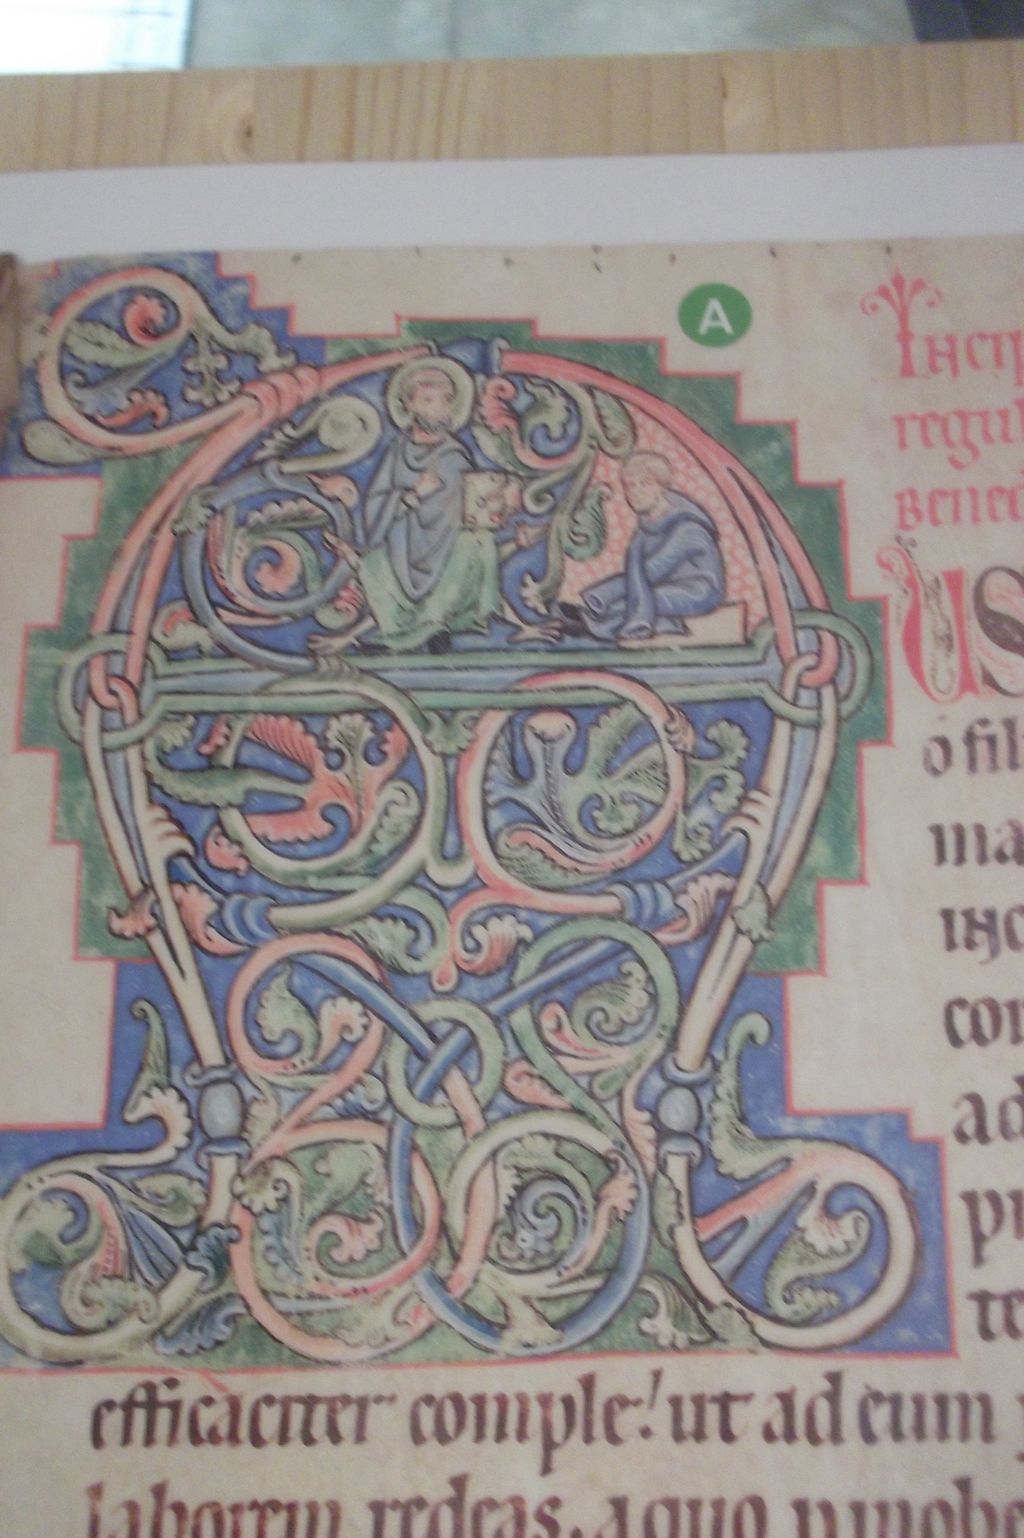 A
Incip
regul
Bened
us
o fili
ma
inc
con
ad
pi
te
efficaciter comple! ut ad eum
laborem redeas, a quo p inobe